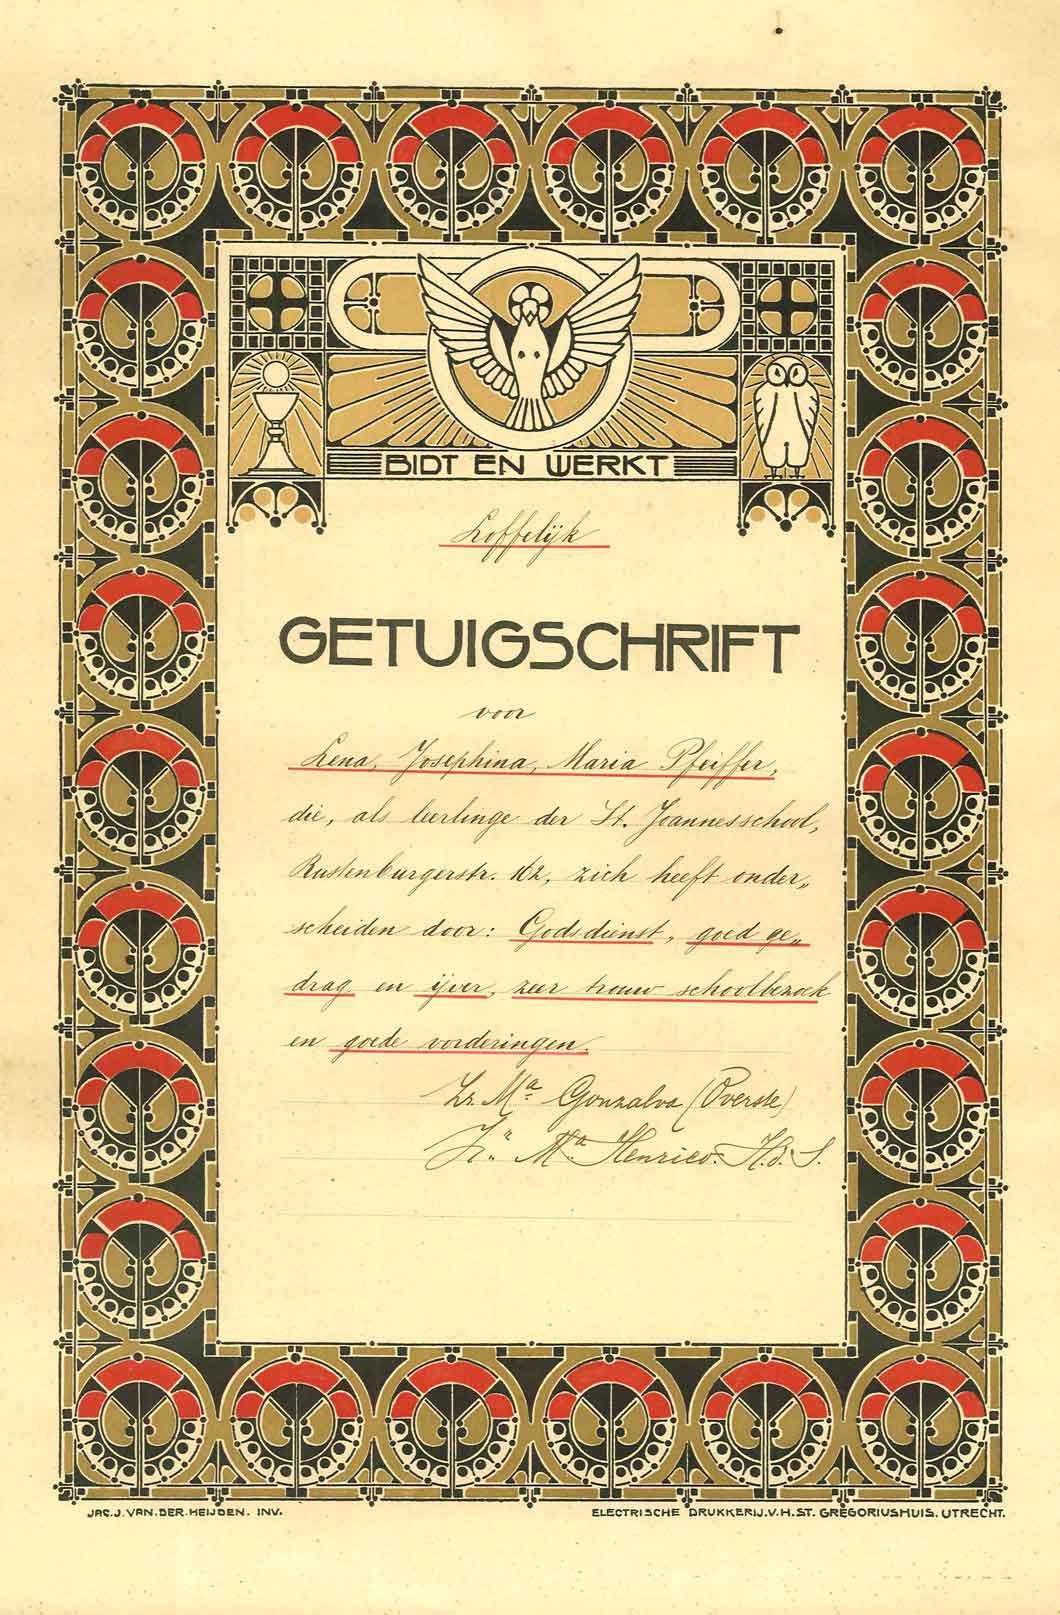 BIDT EN WERKT
Loffelijk
GETUIGSCHRIFT
voor
Lena, Josephina, Maria Pfeiffer,
die, als leerlinge der St. Joannesschool,
Rustenburgerstr. 162, zich heeft onder„
scheiden door: Godsdienst, goed ge„
drag en ijver, zeer trouw schoolbezoek
en goede vorderingen.
Zr. Ma Gonzalva (Overste)
Zr. Ma Henrico. H.d.S.
JAC. J. VAN. DER. HEIJDEN. INV.
ELECTRISCHE DRUKKERIJ. V. H. ST. GREGORIUSHUIS. UTRECHT.